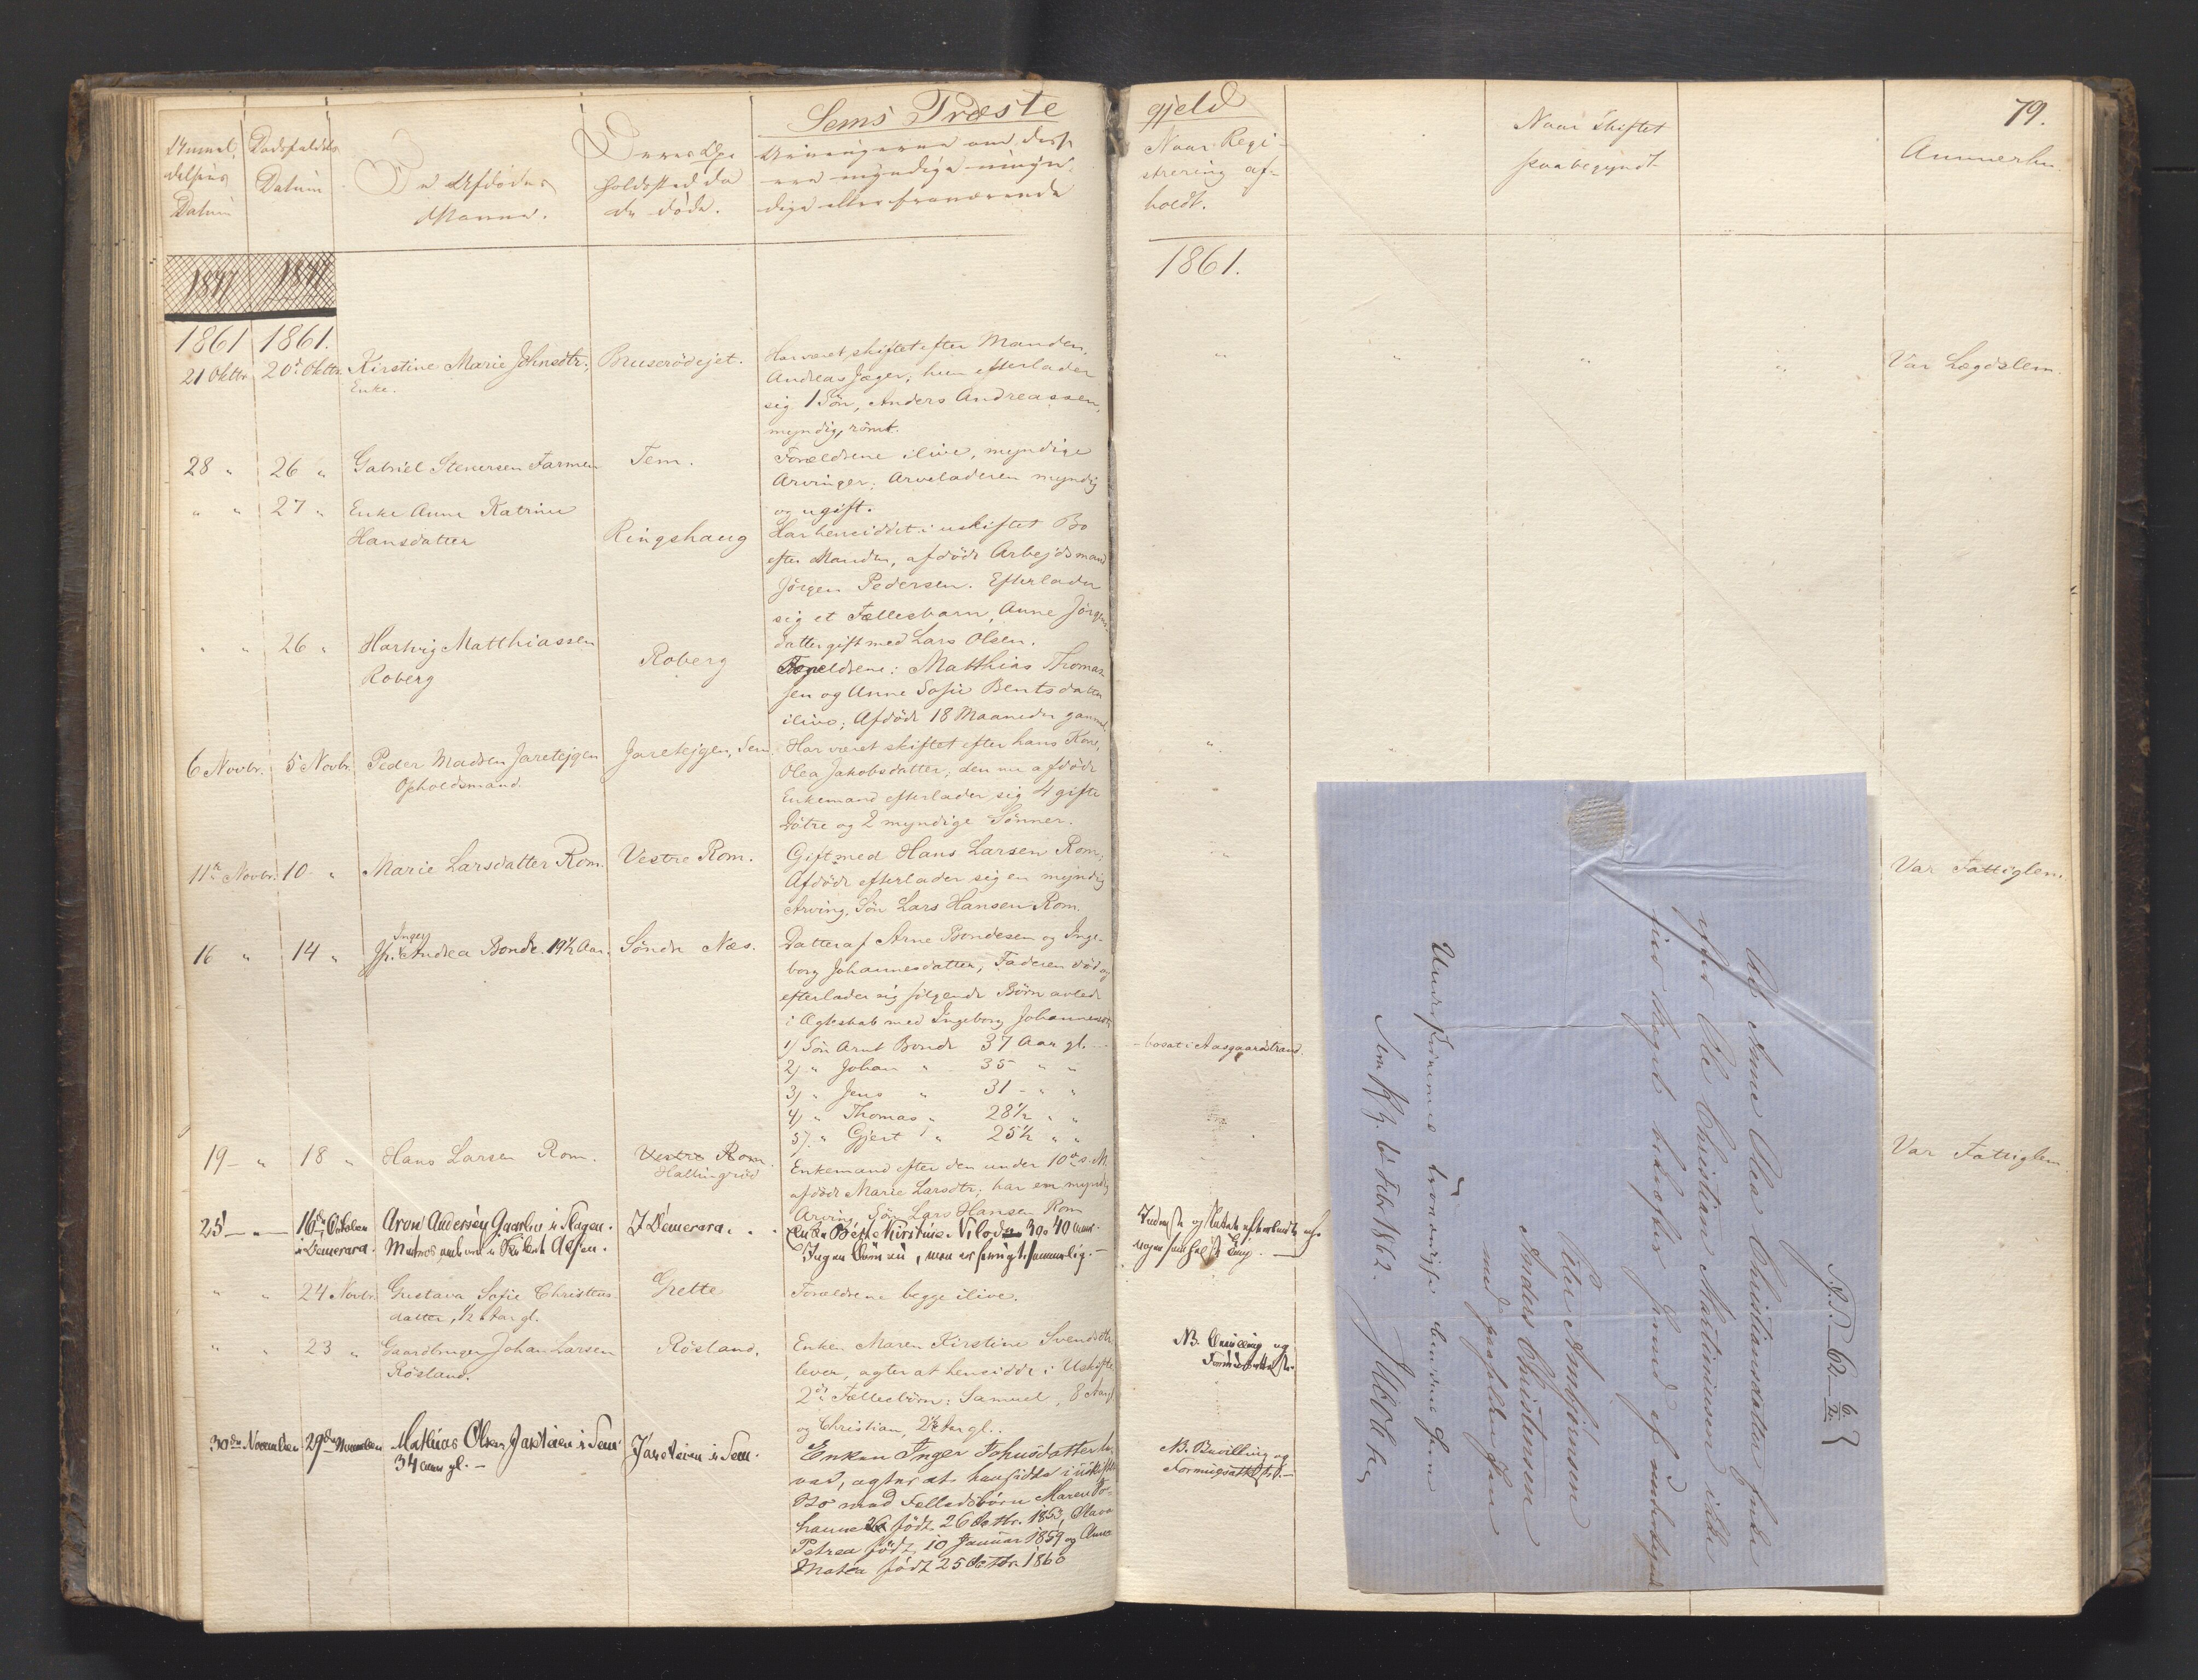 Sems Præste
gjeld
79.
Anmel-
delsens
Datum
Dødsfaldets
Datum
De Afdødes
Navne.
Deres Op-
holdssted da
de døde.
Arvingerne om disse
ere myndige umyn-
dige eller fraværende
Naar Regi-
strering af-
holdt.
Naar Skiftet
paabegyndt
Anmærkn.
1847 1847
1861.
1861 1861.
21 Oktbr 20de Oktbr Kirstine Marie Johnsdtr.,
Enke.
Bruserödejet.
Har været skiftet efter Manden,
Andreas Jæger; hun efterlader
sig 1 Sön, Anders Andreassen,
myndig, römt.
Var Lægdslem.
28 " 26 " Gabriel Stenersen Farmen
Tem.
Forældrene ilive, myndige
Arvinger; Arveladeren myndig
og ugift.
" " 27 " Enke Anne Katrine
Hansdatter
Ringshaug
Har hensiddet i uskiftet Bo
efter Manden, afdöde Arbejdsmand
Jörgen Pedersen. Efterlader
sig et Fællesbarn, Anne Jörgens-
datter gift med Lars Olsen.
" " 26 " Hartvig Matthiassen
Roberg
Roberg
Forældrene: Matthias Thomas-
sen og Anne Sofie Bentsdatter
ilive; Afdöde 18 Maaneder gammel
6 Novbr. 5 Novbr. Peder Madsen Jaretejgen
Opholdsmand.
Jaretejgen, Sem
Har været skiftet efter hans Kone,
Olea Jakobsdatter; den nu afdöde
Enkemand efterlader sig 4 gifte
Dötre og 2 myndige Sönner.
11te Novbr. 10 " Marie Larsdatter Rom.
Vestre Rom.
Gift med Hans Larsen Rom;
Afdöde efterlader sig en myndig
Arving, Sön Lars Hansen Rom.
Var Fattiglem.
16 " 14 " Jfr. Inger Andrea Bonde. 19½ Aar.
Söndre Næs.
Datter af Arne Bondesen og Inge-
borg Johannesdatter; Faderen död og
efterlader sig fölgende Börn avlede
i Ægteskab med Ingeborg Johannesdtr
1) Sön Arnt Bonde 37 Aar gl. - - bosat i Aasgaardstrand.
2) " Johan " 35 " "
3) " Jens " 31 - " "
4) " Thomas " 28½ " "
5) " Gjert " 25½ " "
19 - " 18 " Hans Larsen Rom.
Vestre Rom.
Hallingröd
Enkemand efter den under 10de s. M.
afdöde Marie Larsdtr; har en myndig
Arving, Sön Lars Hansen Rom
Var Fattiglem.
25 - " - 16de October
i Demerara.
Aron Andersen i Slagen.
Matros
I Demerara.
Enke 40 Aar.
Ingen Börn
" " 24 Novbr. Gustava Sofie Christens-
datter, ½ Aar gl.
Grette
Forældrene begge ilive.
" " 23 " Gaardbruger Johan Larsen
Rösland.
Rösland.
Enken Maren Kirstine Svendsdtr
lever, agter at hensidde i Uskifte
2de Fællesbörn: Samuel, 8 Aar gl
og Christian, 2½ Aar gl.
NB. Bevilling og
30te November 29de November Mathias Olsen Jareteien i Sem
34 Aar gl. -
Jareteien i Sem.
Enken Inger Johnsdatter le-
ver, agter at hensidde i uskiftet
Bo med Fælledsbörn Maren Jo-
hanne födt 26 Octbr. 1853, Olava
Petrea födt 10 Januar 1859 og Anne
Matea födt 25 Octbr. 1860
NB. Bevilling og
P.J. 62 6/2
At Anne Olea Christiansdatter Enke
efter Ole Christian Martiniussen ikke
Eder Arnbjörnsen
Anders Christensen
med paaholden Pen
Sem 6 Febr 1862.